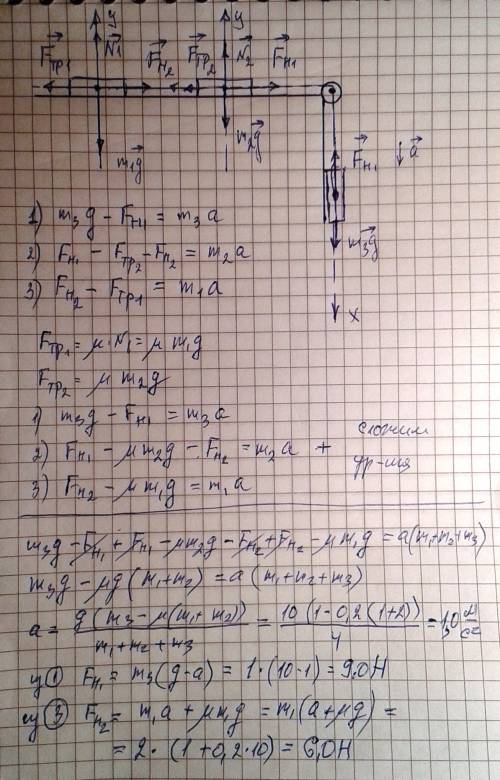 y y
F⃗тр1 N⃗1 F⃗н2 F⃗тр2 N⃗2 F⃗н1
m⃗1g m⃗2g F⃗н1 ↓a⃗
1) m₃g − Fн1 = m₃a
m⃗3g
2) Fн1 − Fтр2 − Fн2 = m₂a
3) Fн2 − Fтр1 = m₁a
x
Fтр1 = μ·N₁ = μm₁g
Fтр2 = μm₂g
1) m₃g − Fн1 = m₃a
сложим
2) Fн1 − μm₂g − Fн2 = m₂a +
ур-ния
3) Fн2 − μm₁g = m₁a
m₃g − Fн1 + Fн1 − μm₂g − Fн2 + Fн2 − μm₁g = a(m₁+m₂+m₃)
m₃g − μg(m₁+m₂) = a(m₁+m₂+m₃)
a = g(m₃ − μ(m₁+m₂)) / m₁+m₂+m₃ = 10(1−0,2(1+2)) / 4 = 1,0 м/с²
из ① Fн1 = m₃(g−a) = 1·(10−1) = 9,0Н
из ③ Fн2 = m₁a + μm₁g = m₁(a+μg) =
= 2·(1+0,2·10) = 6,0Н